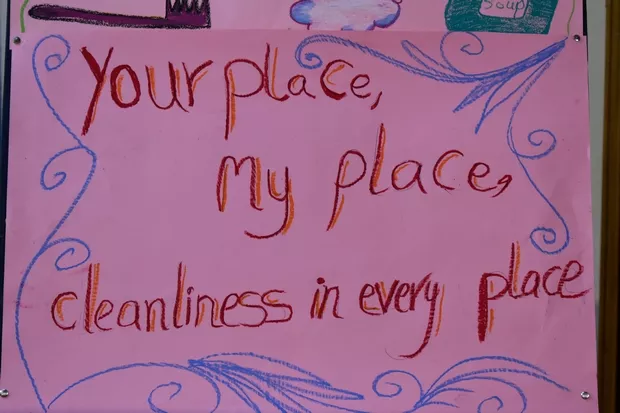 Soup
Your place,
My place,
cleanliness in every place